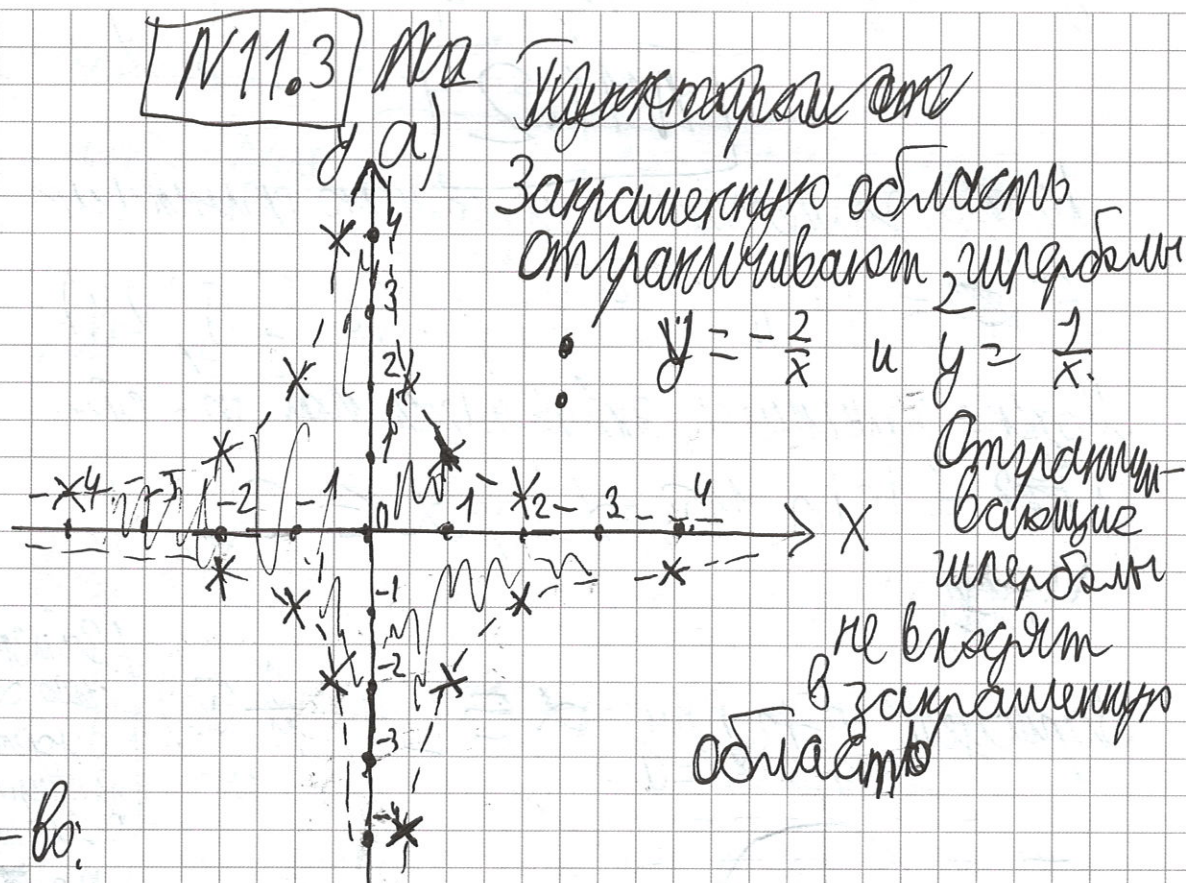 N11.3
а)
Закрашенную область
отграничивают 2 гиперболы
y = -2/x и y = 1/x.
Отграничи-
вающие
гиперболы
не входят
в закрашенную
область
y
4
3
2
1
-4 -3 -2 -1 0 1 2 3 4 X
-1
-2
-3
-4
-во: